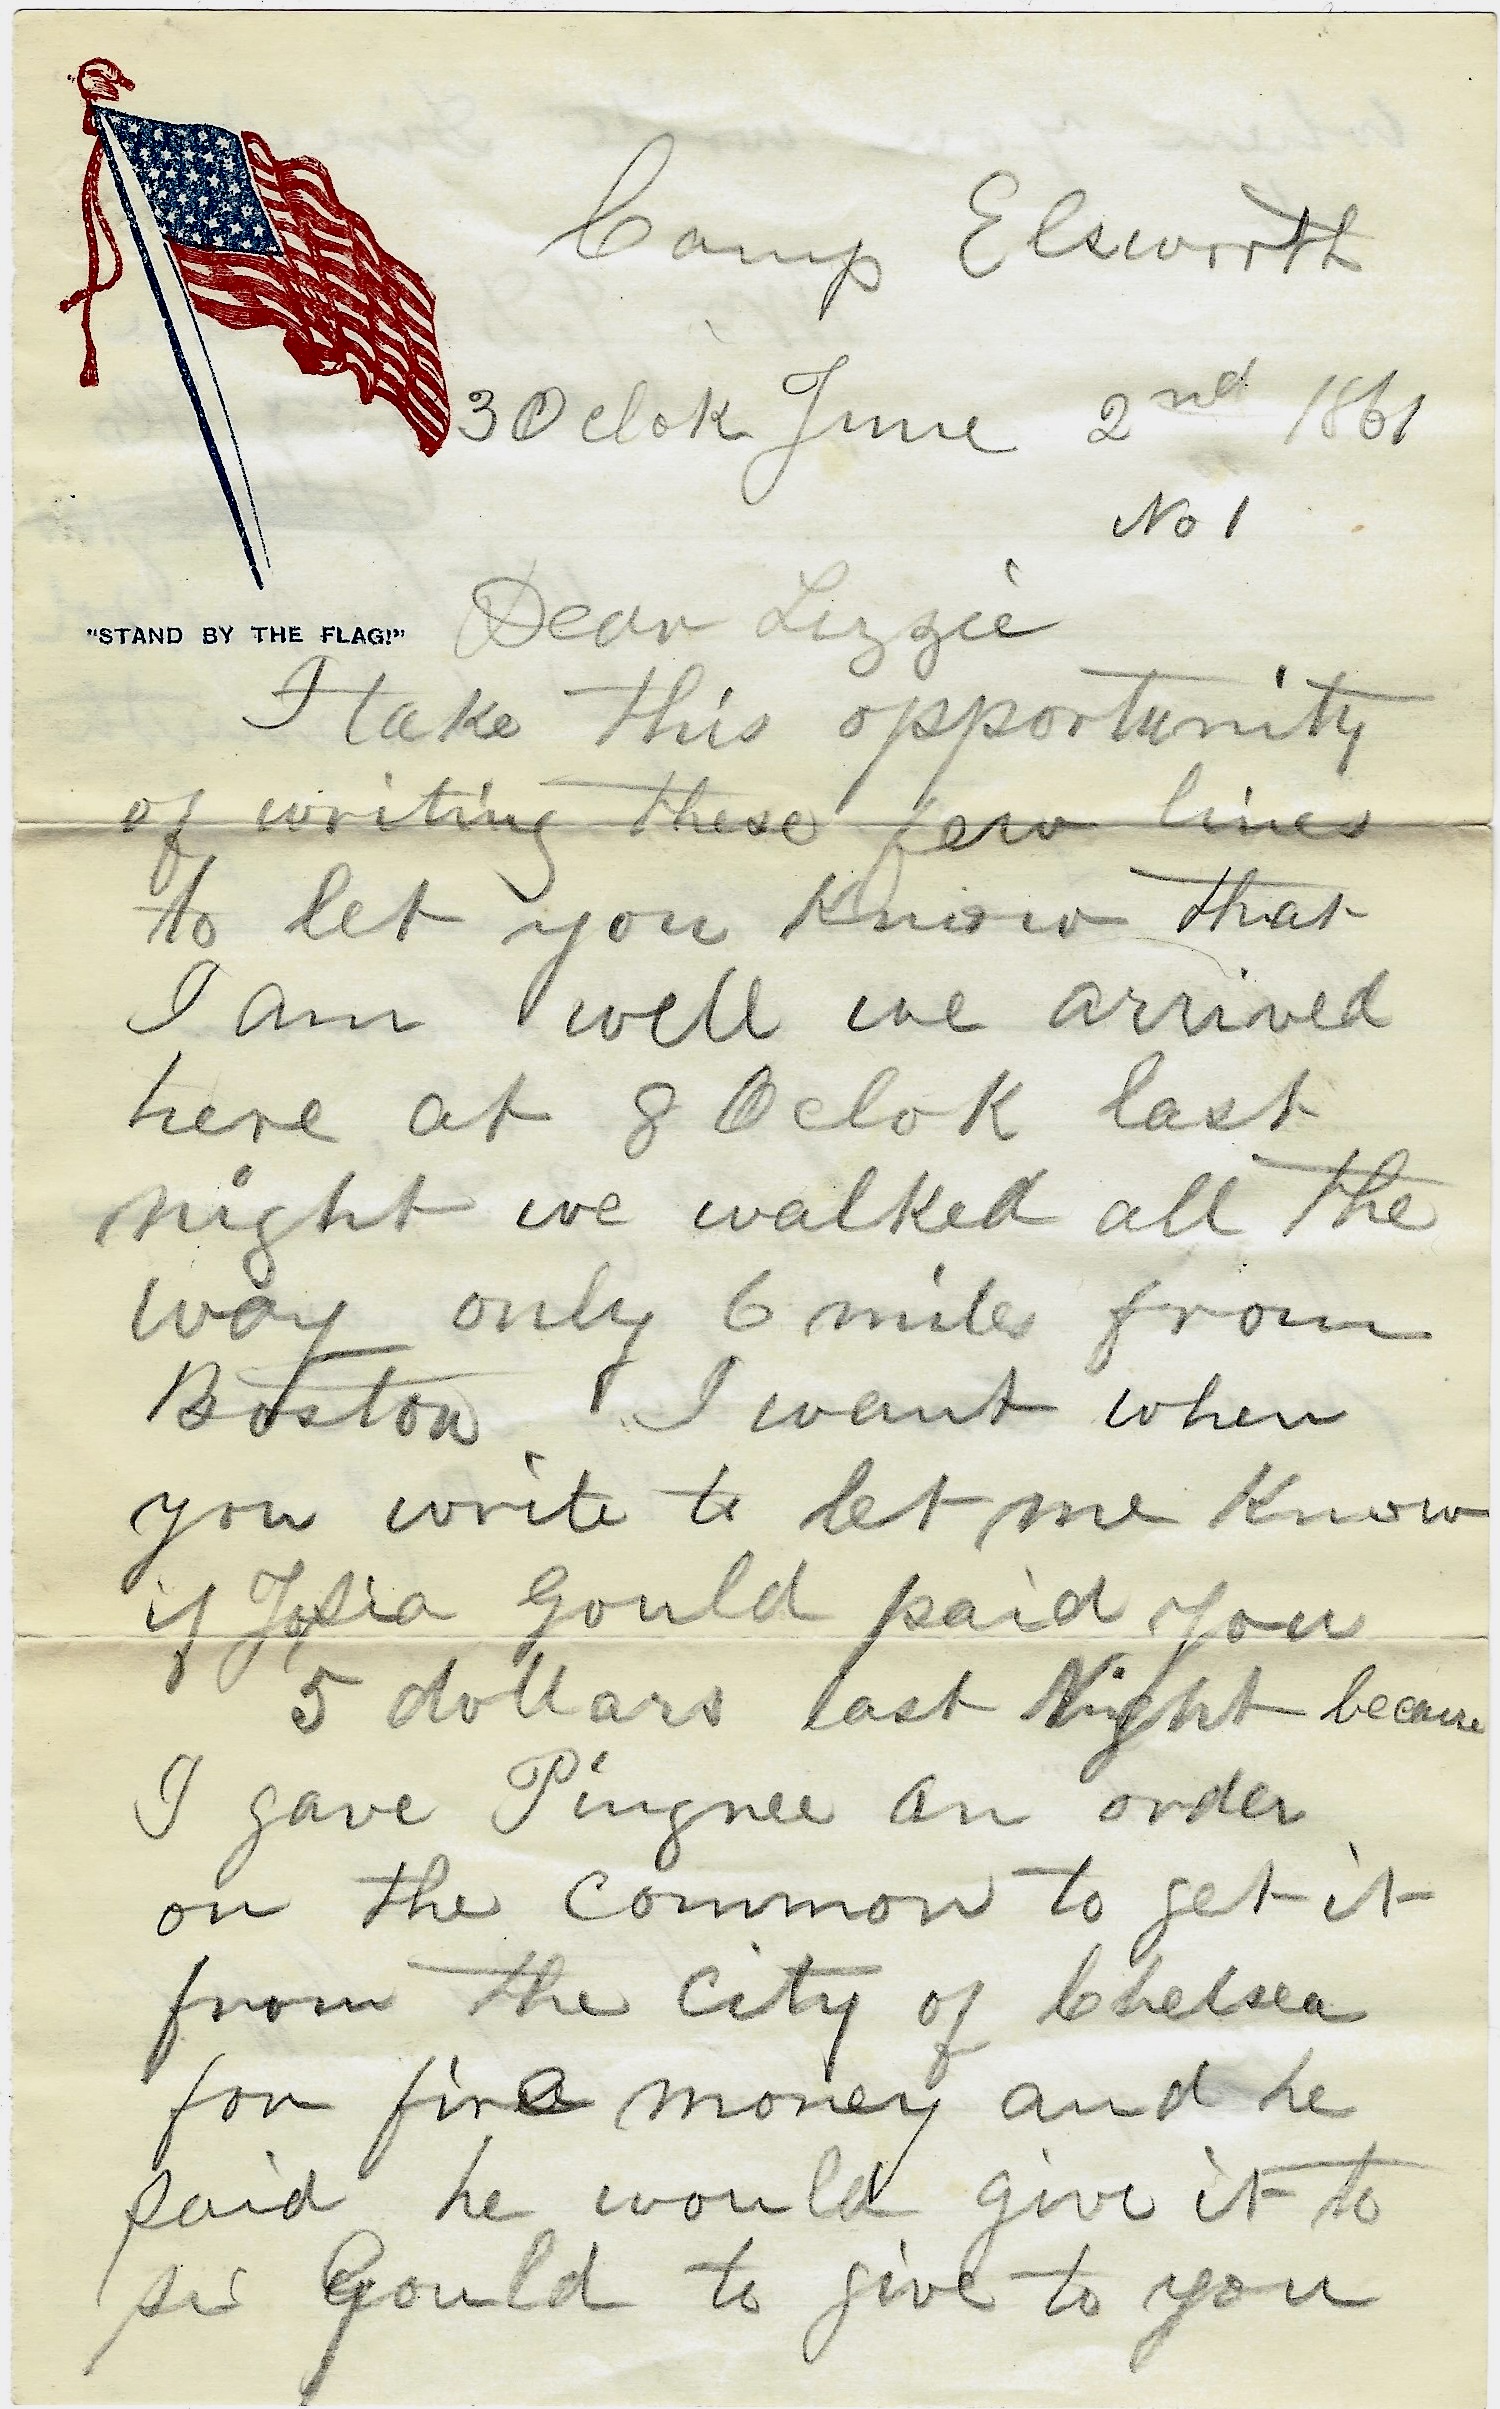 Camp Elsworth
3 Oclok June 2nd 1861
No 1
"STAND BY THE FLAG!"
Dear Lizzie
I take this opportunity
of writing these few lines
to let you know that
I am well we arrived
here at 8 Oclok last
night we walked all the
way only 6 miles from
Boston. I want when
you write to let me know
if Josia Gould paid you
5 dollars last Night because
I gave Pingree an order
on the common to get it
from the City of Chelsea
for fire money and he
said he would give it to
si Gould to give to you